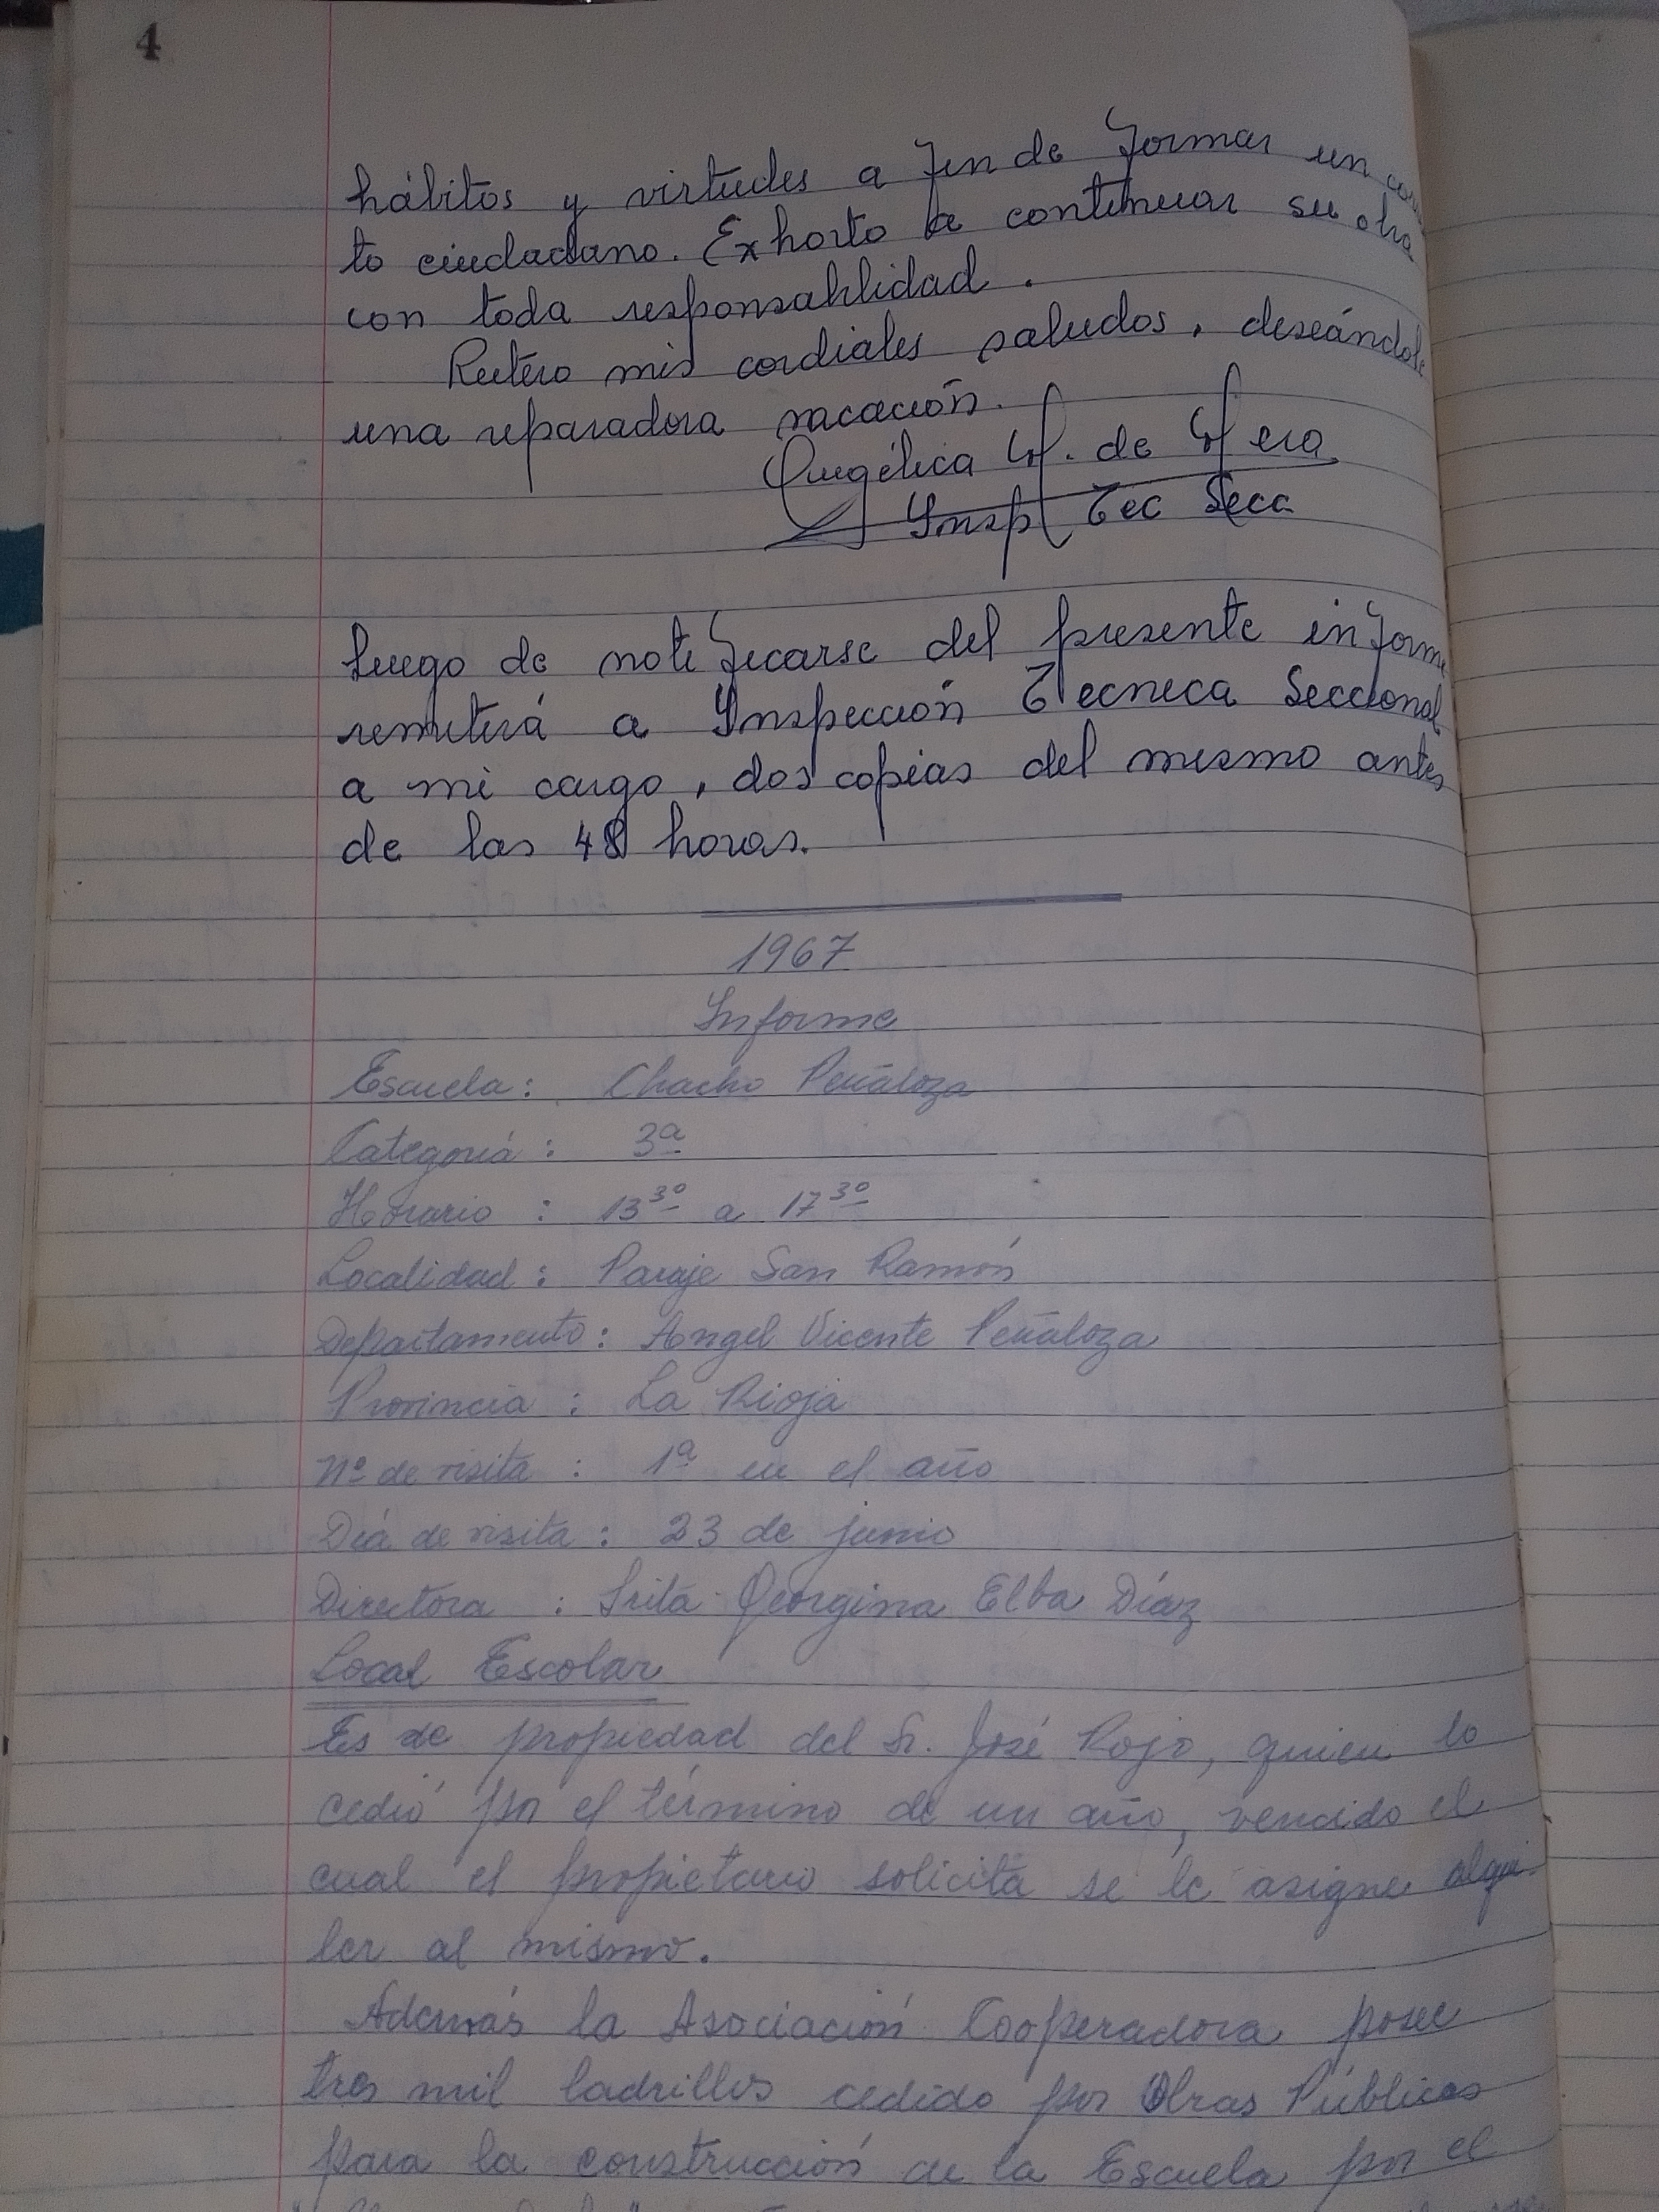 4
hábitos y virtudes a fin de formar un
to ciudadano. Exhorto a continuar su obra
con toda responsabilidad.
Reitero mis cordiales saludos, deseándole
una reparadora vacación.
Angélica H. de
Insp Tec Secc
Luego de notificarse del presente informe
remitirá a Inspección Técnica Seccional
a mi cargo, dos copias del mismo antes
de las 48 horas.
1967
Informe
Escuela: Chacho Peñaloza
Categoría: 3ª
Horario : 13³⁰ a 17³⁰
Localidad: Paraje San Ramón
Departamento: Angel Vicente Peñaloza
Provincia : La Rioja
Nº de visita : 1ª en el año
Día de visita : 23 de junio
Directora : Srita Georgina Elba Díaz
Local Escolar
Es de propiedad del Sr. José Rojo, quien lo
cedió por el término de un año, vencido el
cual el propietario solicita se le asigne alqui-
ler al mismo.
Además la Asociación Cooperadora posee
tres mil ladrillos cedido por Obras Públicas
para la construcción de la Escuela por el